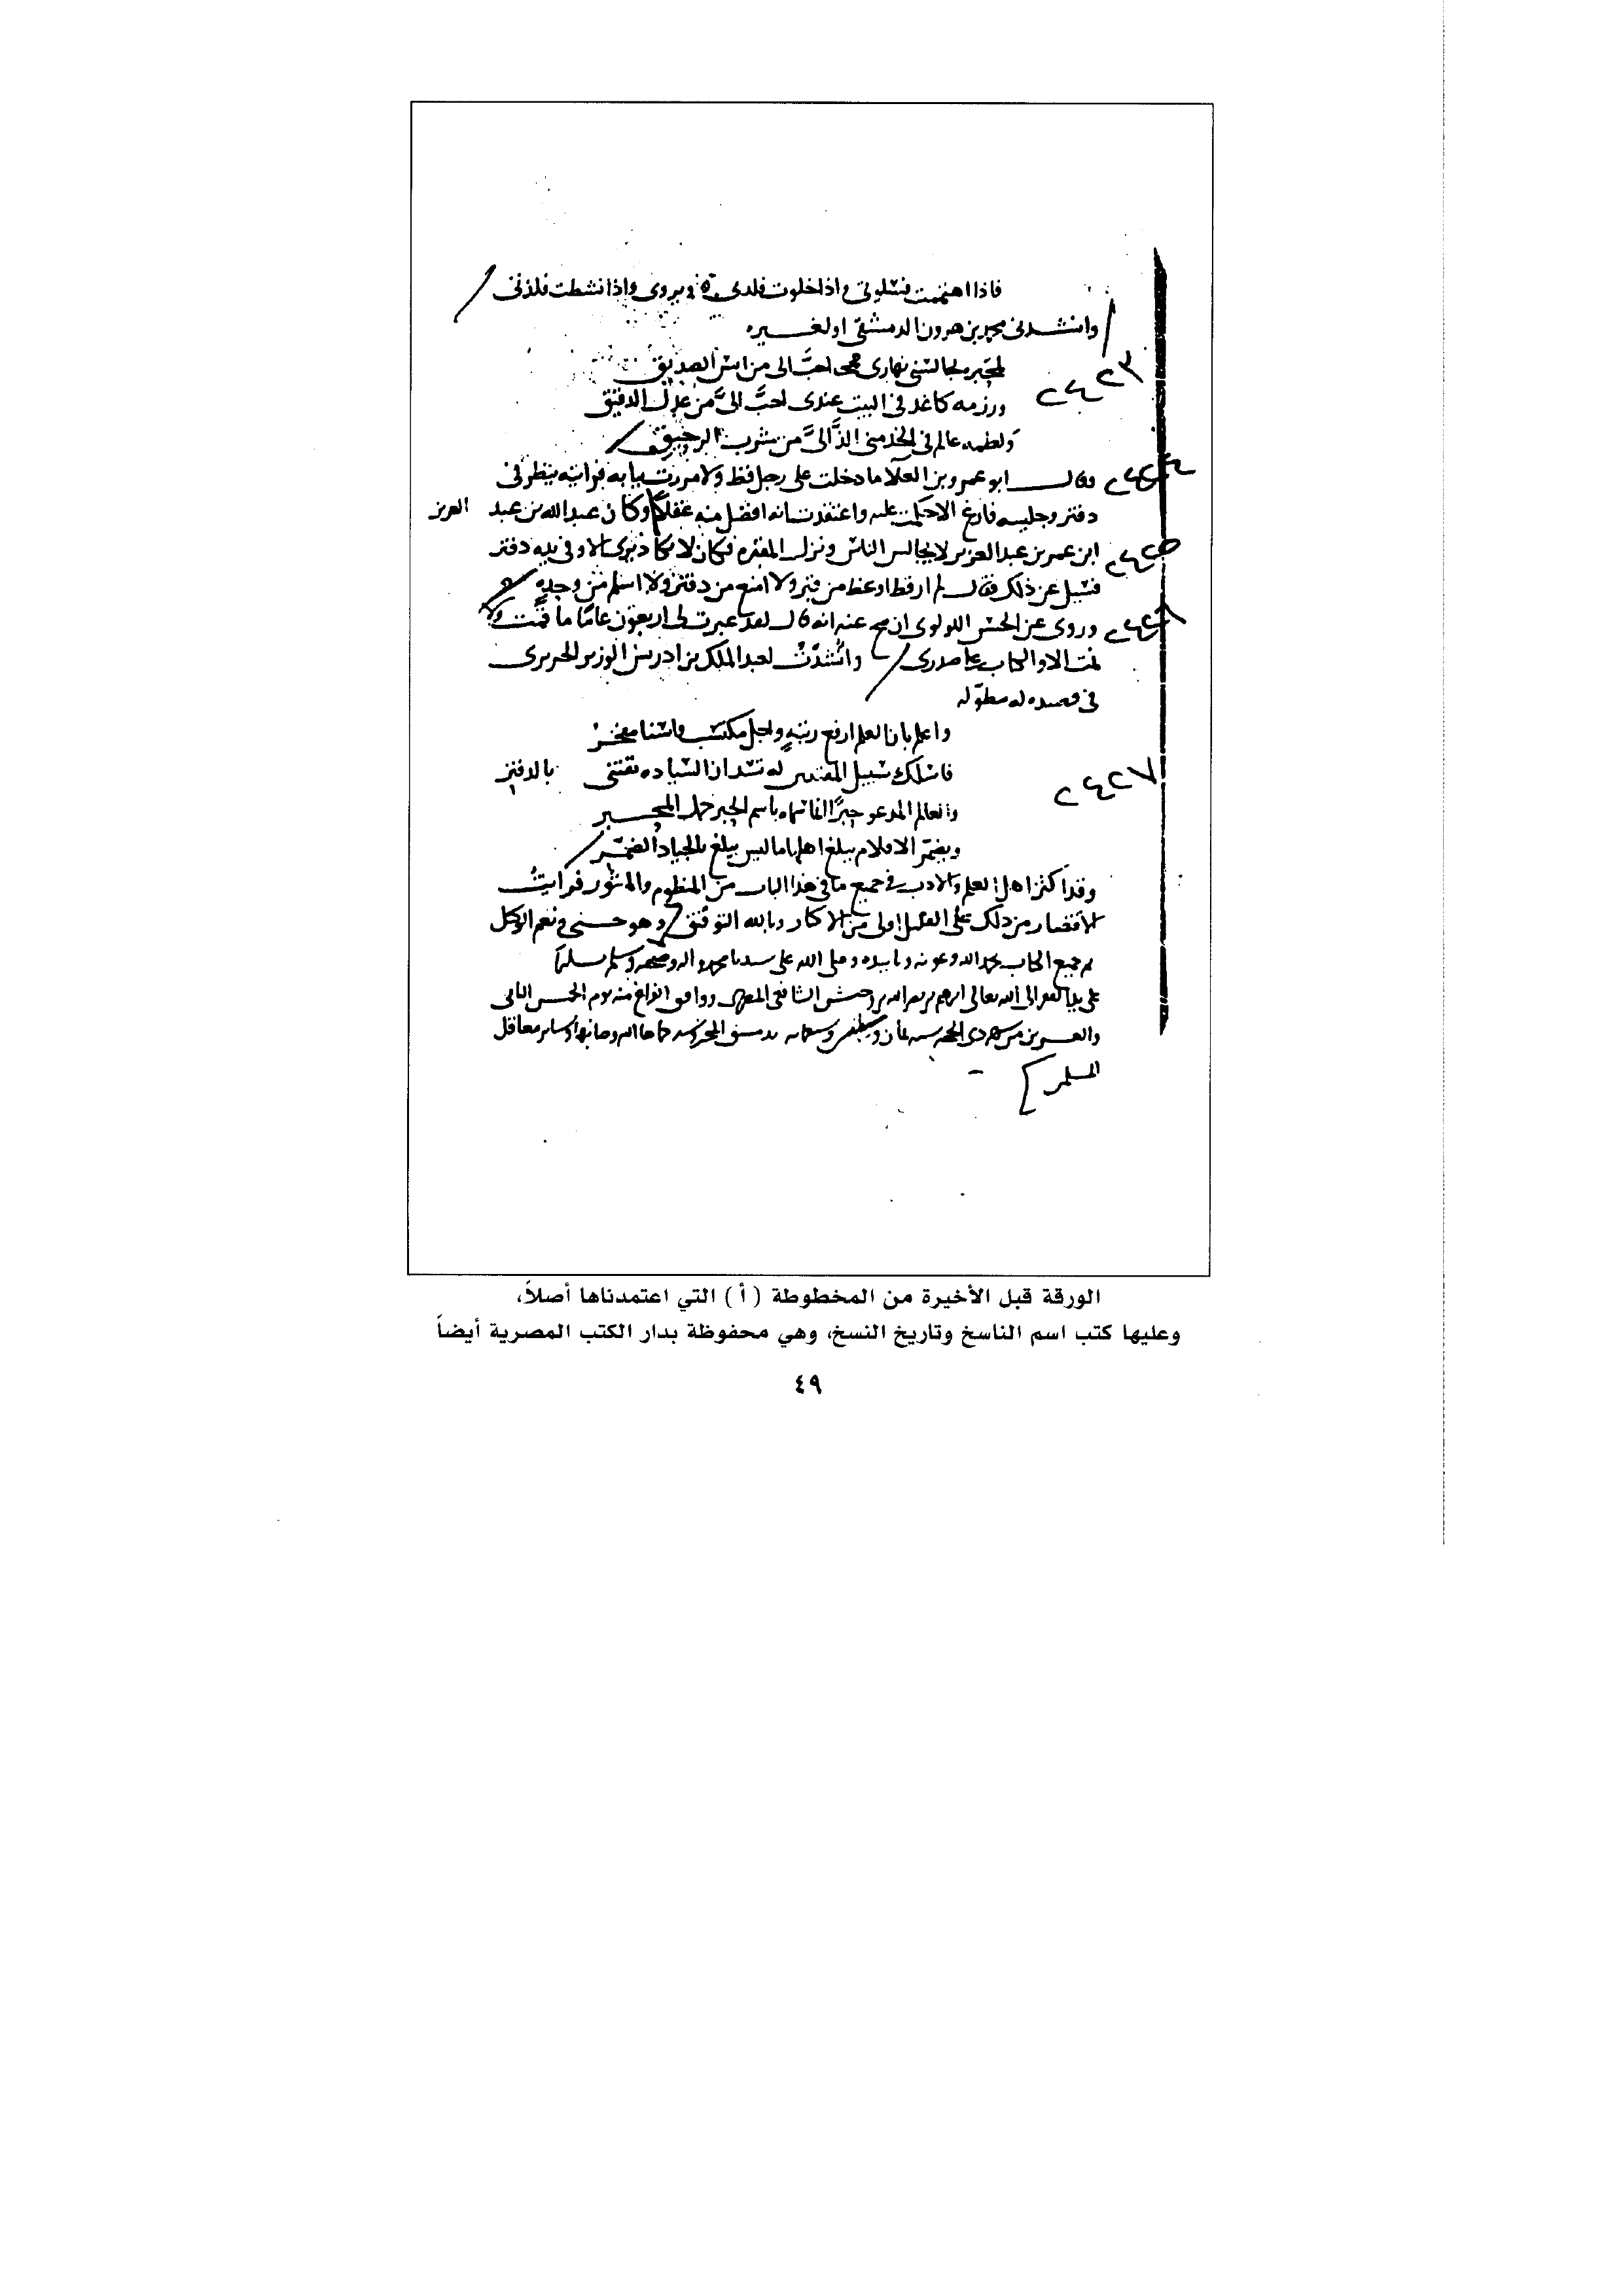 فاذا اهتممت فسلوتي واذا خلوت واذا نشطت فلذتي
وانشدني محمد بن هرون الدمشقي او لغيره
لمحبرة تجالسني نهاري احب الي من انس الصديق
٢٤٢٣
ورزمه كاغد في البيت عندي احب الي من عدل الدقيق
ولطمه عالم في الخد مني الذ الي من شرب الرحيق
٢٤٢٤
وقال ابو عمرو بن العلا ما دخلت على رجل قط ولا مررت ببابه فرايته ينظر في
دفتر وجليسه فارغ الا حكمت عليه واعتقدت انه افضل منه عقلا وكان عبد الله بن عبد العزيز
٢٤٢٥
ابن عمر بن عبد العزيز لا يجالس الناس ونزل المقبره فكان لا يكاد يرى الا وفي يده دفتر
فسيل عن ذلك فقال لم ار قط اوعظ من قبر ولا امنع من دفتر ولا اسلم من وحده
٢٤٢٦
وروى عن الحسن اللولوي ان صح عنه انه قال لقد عبرت لي اربعون عاما ما قمت ولا
نمت الا والكتاب على صدري وانشدت لعبد الملك بن ادريس الوزير الجزيري
في قصيده له مطوله
واعلم بان العلم ارفع رتبة واجل مكتسب واسنا مفخر
٢٤٢٧
فاسلك سبيل المقتنين له تسد ان السياده تقتنى بالدفتر
والعالم المدعو حبرا انما سماه باسم الحبر حمل المحبر
وبضمر الاقلام يبلغ اهلها ما ليس يبلغ بالجياد الضمر
وقد اكثر اهل العلم والادب في جميع ما في هذا الباب من المنظوم والمنثور فرايت
الاقتصار من ذلك على القليل اولى من الاكثار وبالله التوفيق وهو حسبي ونعم الوكيل
تم جميع الكتاب بحمد الله وعونه وتاييده وصلى الله على سيدنا محمد واله وصحبه وسلم تسليما
على يد الفقير الى الله تعالى الشافعي ووافق الفراغ منه يوم الخميس الثاني
والعشرين من شهر ذي الحجه سنه ثمان وسبعمايه بدمشق المحروسه حماها الله وصانها وساير معاقل
المسلمين
الورقة قبل الأخيرة من المخطوطة (أ) التي اعتمدناها أصلاً،
وعليها كتب اسم الناسخ وتاريخ النسخ، وهي محفوظة بدار الكتب المصرية أيضاً
٤٩